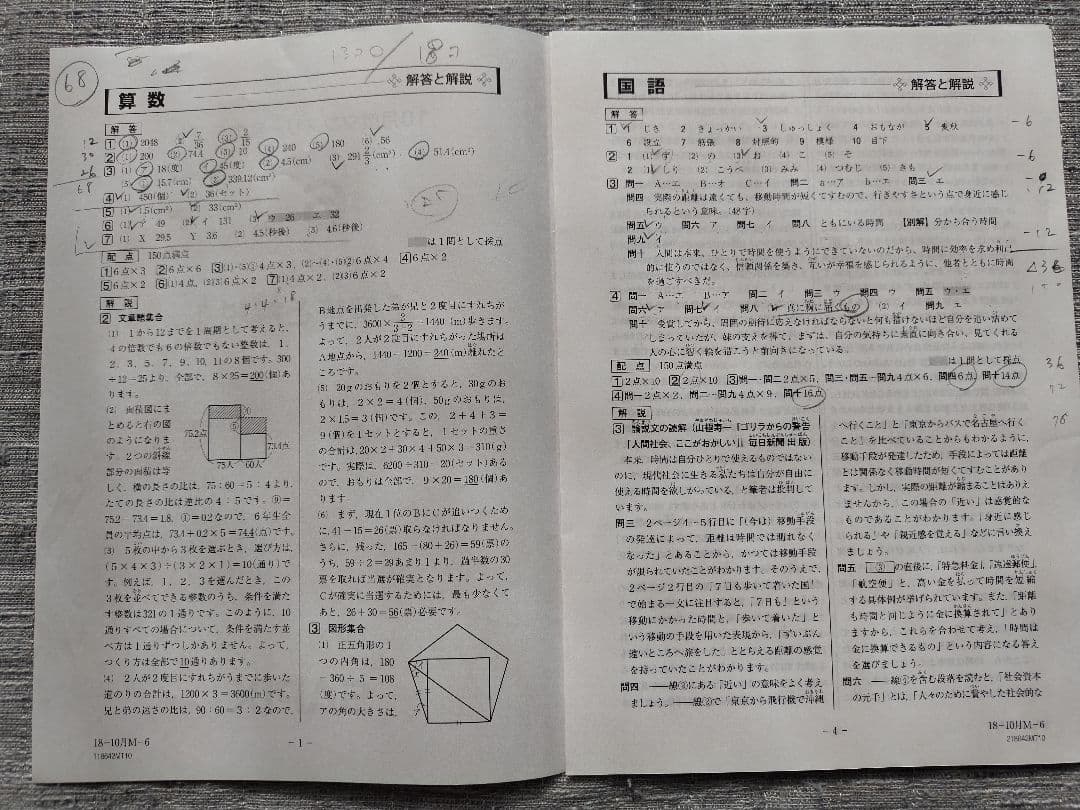 68
1300/180
算数
解答と解説
解答
1 (1) 2048 (2) 7/36 (3) 2/15 (4) 240 (5) 180 (6) 56
2 (1) 200 (2) 74.4 (3) 10 (4) 240 (5) 180 (6) 56
3 (1) ア 18(度) イ 45(度) (2) 4.5(cm) (3) 29 2/3(cm²) (4) 51.4(cm²)
(5) 15.7(cm) 339.12(cm²)
4 (1) 450(個) (2) 36(セット)
5 (1) 1.5(cm³) (2) 33(cm²)
6 (1) ア 49 (2) イ 131 (3) ウ 26 エ 32
7 (1) X 29.5 Y 3.6 (2) 4.5(秒後) (3) 4.6(秒後)
12
30
26
68
25
は1問として採点
配点 150点満点
1 6点×3 2 6点×6 3 (1)・(5)各4点×3, (2)~(4)・(5)2 6点×4 4 6点×2
5 6点×2 6 (1)4点, (2)(3)6点×2 7 (1)4点×2, (2)(3)6点×2
解説
2 文章題集合
(1) 1から12までを1周期として考えると,
4の倍数でも6の倍数でない整数は, 1,
2, 3, 5, 7, 9, 10, 11の8個です。300
÷12=25より, 全部で, 8×25=200(個)あ
ります。
(2) 面積図にま
とめると右の図
のようになりま
す。2つの斜線
部分の面積は等
75.2点
73.4点
75人 60人
しく, 横の長さの比は, 75:60=5:4より,
たての長さの比は逆比の4:5です。⑨=
75.2-73.4=1.8, ①=0.2なので, 6年生全
員の平均点は, 73.4+0.2×5=74.4(点)です。
(3) 5枚の中から3枚を選ぶとき, 選び方は,
(5×4×3)÷(3×2×1)=10(通り)で
す。例えば, 1, 2, 3を選んだとき, この
3枚を並べてできる整数のうち, 条件を満た
す整数は321の1通りです。このように, 10
通りすべての場合について, 条件を満たす並
べ方は1通りずつしかありません。よって,
つくり方は全部で10通りあります。
(4) 2人が2度目にすれちがうまでに歩いた
道のりの合計は, 1200×3=3600(m)です。
兄と弟の速さの比は, 90:60=3:2なので,
B地点を出発した弟が兄と2度目にすれちが
うまでに, 3600×2/(3+2)=1440(m)歩きます。
よって, 2人が2度目にすれちがった場所は
A地点から, 1440-1200=240(m)離れたと
ころです。
(5) 20gのおもりを2個とすると, 30gのお
もりは, 2×2=4(個), 50gのおもりは,
2×1.5=3(個)です。この, 2+4+3=
9(個)を1セットとすると, 1セットの重さ
の合計は, 20×2+30×4+50×3=310(g)
です。実際は, 6200÷310=20(セット)ある
ので, おもりは全部で, 9×20=180(個)あり
ます。
(6) まず, 現在1位のBにCが追いつくため
に, 41-15=26(票)取らなければなりません。
さらに, 残った, 165-(80+26)=59(票)の
うち, 59÷2=29あまり1より, 過半数の30
票を取れば当選が確実となります。よって,
Cが確実に当選するためには, 最も少なくて
あと, 26+30=56(票)必要です。
3 図形集合
(1) 正五角形の1
つの内角は, 180
-360÷5=108
(度)です。よって,
アの角の大きさは,
18-10月M-6
118642M110
-1-
国語
解答と解説
解答
1 1 じき 2 きょっかい 3 しゅっしょく 4 おもなが 5 麦秋
6 設立 7 筋張 8 対照的 9 模様 10 目下
2 1 (1) 字 (2) の (3) お (4) こ (5) そ
2 (1) しり (2) こうべ (3) みみ (4) つむじ (5) きも
3 問一 A…エ B…オ C…イ 問二 a…ア b…エ 問三 エ
問四 実際の距離は遠くても、移動時間が短くてすむので、行きやすさという点で身近に感じ
られるという意味。(48字)
問五 ウ 問六 ア 問七 イ 問八 ともにいる時間 【別解】分から合う時間
問九 イ
問十 人間は本来、ひとりで時間を使うようにできていないのだから、時間に効率を求め利己
的に使うのではなく、信頼関係を築き、互いが幸福を感じられるように、他者とともに時間
を過ごすべきだ。
4 問一 A…エ B…ア 問二 イ 問三 ウ 問四 ウ 問五 ウ・エ
問六 ア 問七 イ 問八 真に胸に届くもの (2) イ 問九 エ
問十 受賞してから、周囲の期待に応えなければならないと何も描けないほど自分を追い詰めて
しまっていたが、妹の支えを得て、まずは、自分の気持ちに素直に向き合い、見てくれる
人の心に響く絵を描こうと前向きになっている。
は1問として採点
-6
-6
-12
-12
36
72
76
配点 150点満点
1 2点×10 2 2点×10 3 問一・問二2点×5, 問三・問五~問九4点×6, 問四6点, 問十14点
4 問一2点×2, 問二~問九4点×9, 問十16点
解説
3 論説文の読解(山極寿一『ゴリラからの警告
「人間社会、ここがおかしい」』毎日新聞出版)
本来、時間は自分ひとりで使えるものではない
のに、現代社会に生きる私たちは自分が自由に
使える時間を欲しがっている、と筆者は批判して
います。
問三 2ページ4~5行目に「(今は)移動手段
の発達によって、距離は時間では測れなく
なった」とあることから、かつては移動手段
が限られていたことがわかります。そのうえで、
2ページ2行目の「『7日も歩いて着いた国』
で始まる一文に注目すると、「7日も」という
移動にかかった時間と、「歩いて着いた」と
いう移動の手段を用いた表現から、「ずいぶん
遠いところへ旅をした」ととらえる距離の感覚
を持っていたことがわかります。
問四 ――線②にある「近い」の意味をよく考え
ましょう。――線②で「東京から飛行機で沖縄
へ行くこと」と「東京からバスで名古屋へ行く
こと」を比べていることからもわかるように、
移動手段が発達したため、手段によっては距離
とは関係なく移動時間が短くてすむことがあり
ます。しかし、実際の距離が縮まることはありえ
ませんから、この場合の「近い」は感覚的な
ものであることがわかります。「身近に感じ
られる」や「親近感を覚える」などに言い換え
ましょう。
問五 ③の直後に、「特急料金」「速達郵便」
「航空便」と、高い金を払って時間を短縮
する具体例が挙げられています。また、「距離
も時間と同じように金に換算されて」とあり
ますから、これらを合わせて考え、「時間は
金に換算できるもの」という内容になる答え
を選びましょう。
問六 ――線④を含む段落を読むと、「社会資本
の元手」とは、「人々のために費やした社会的な
18-10月M-6
218642M110
-4-